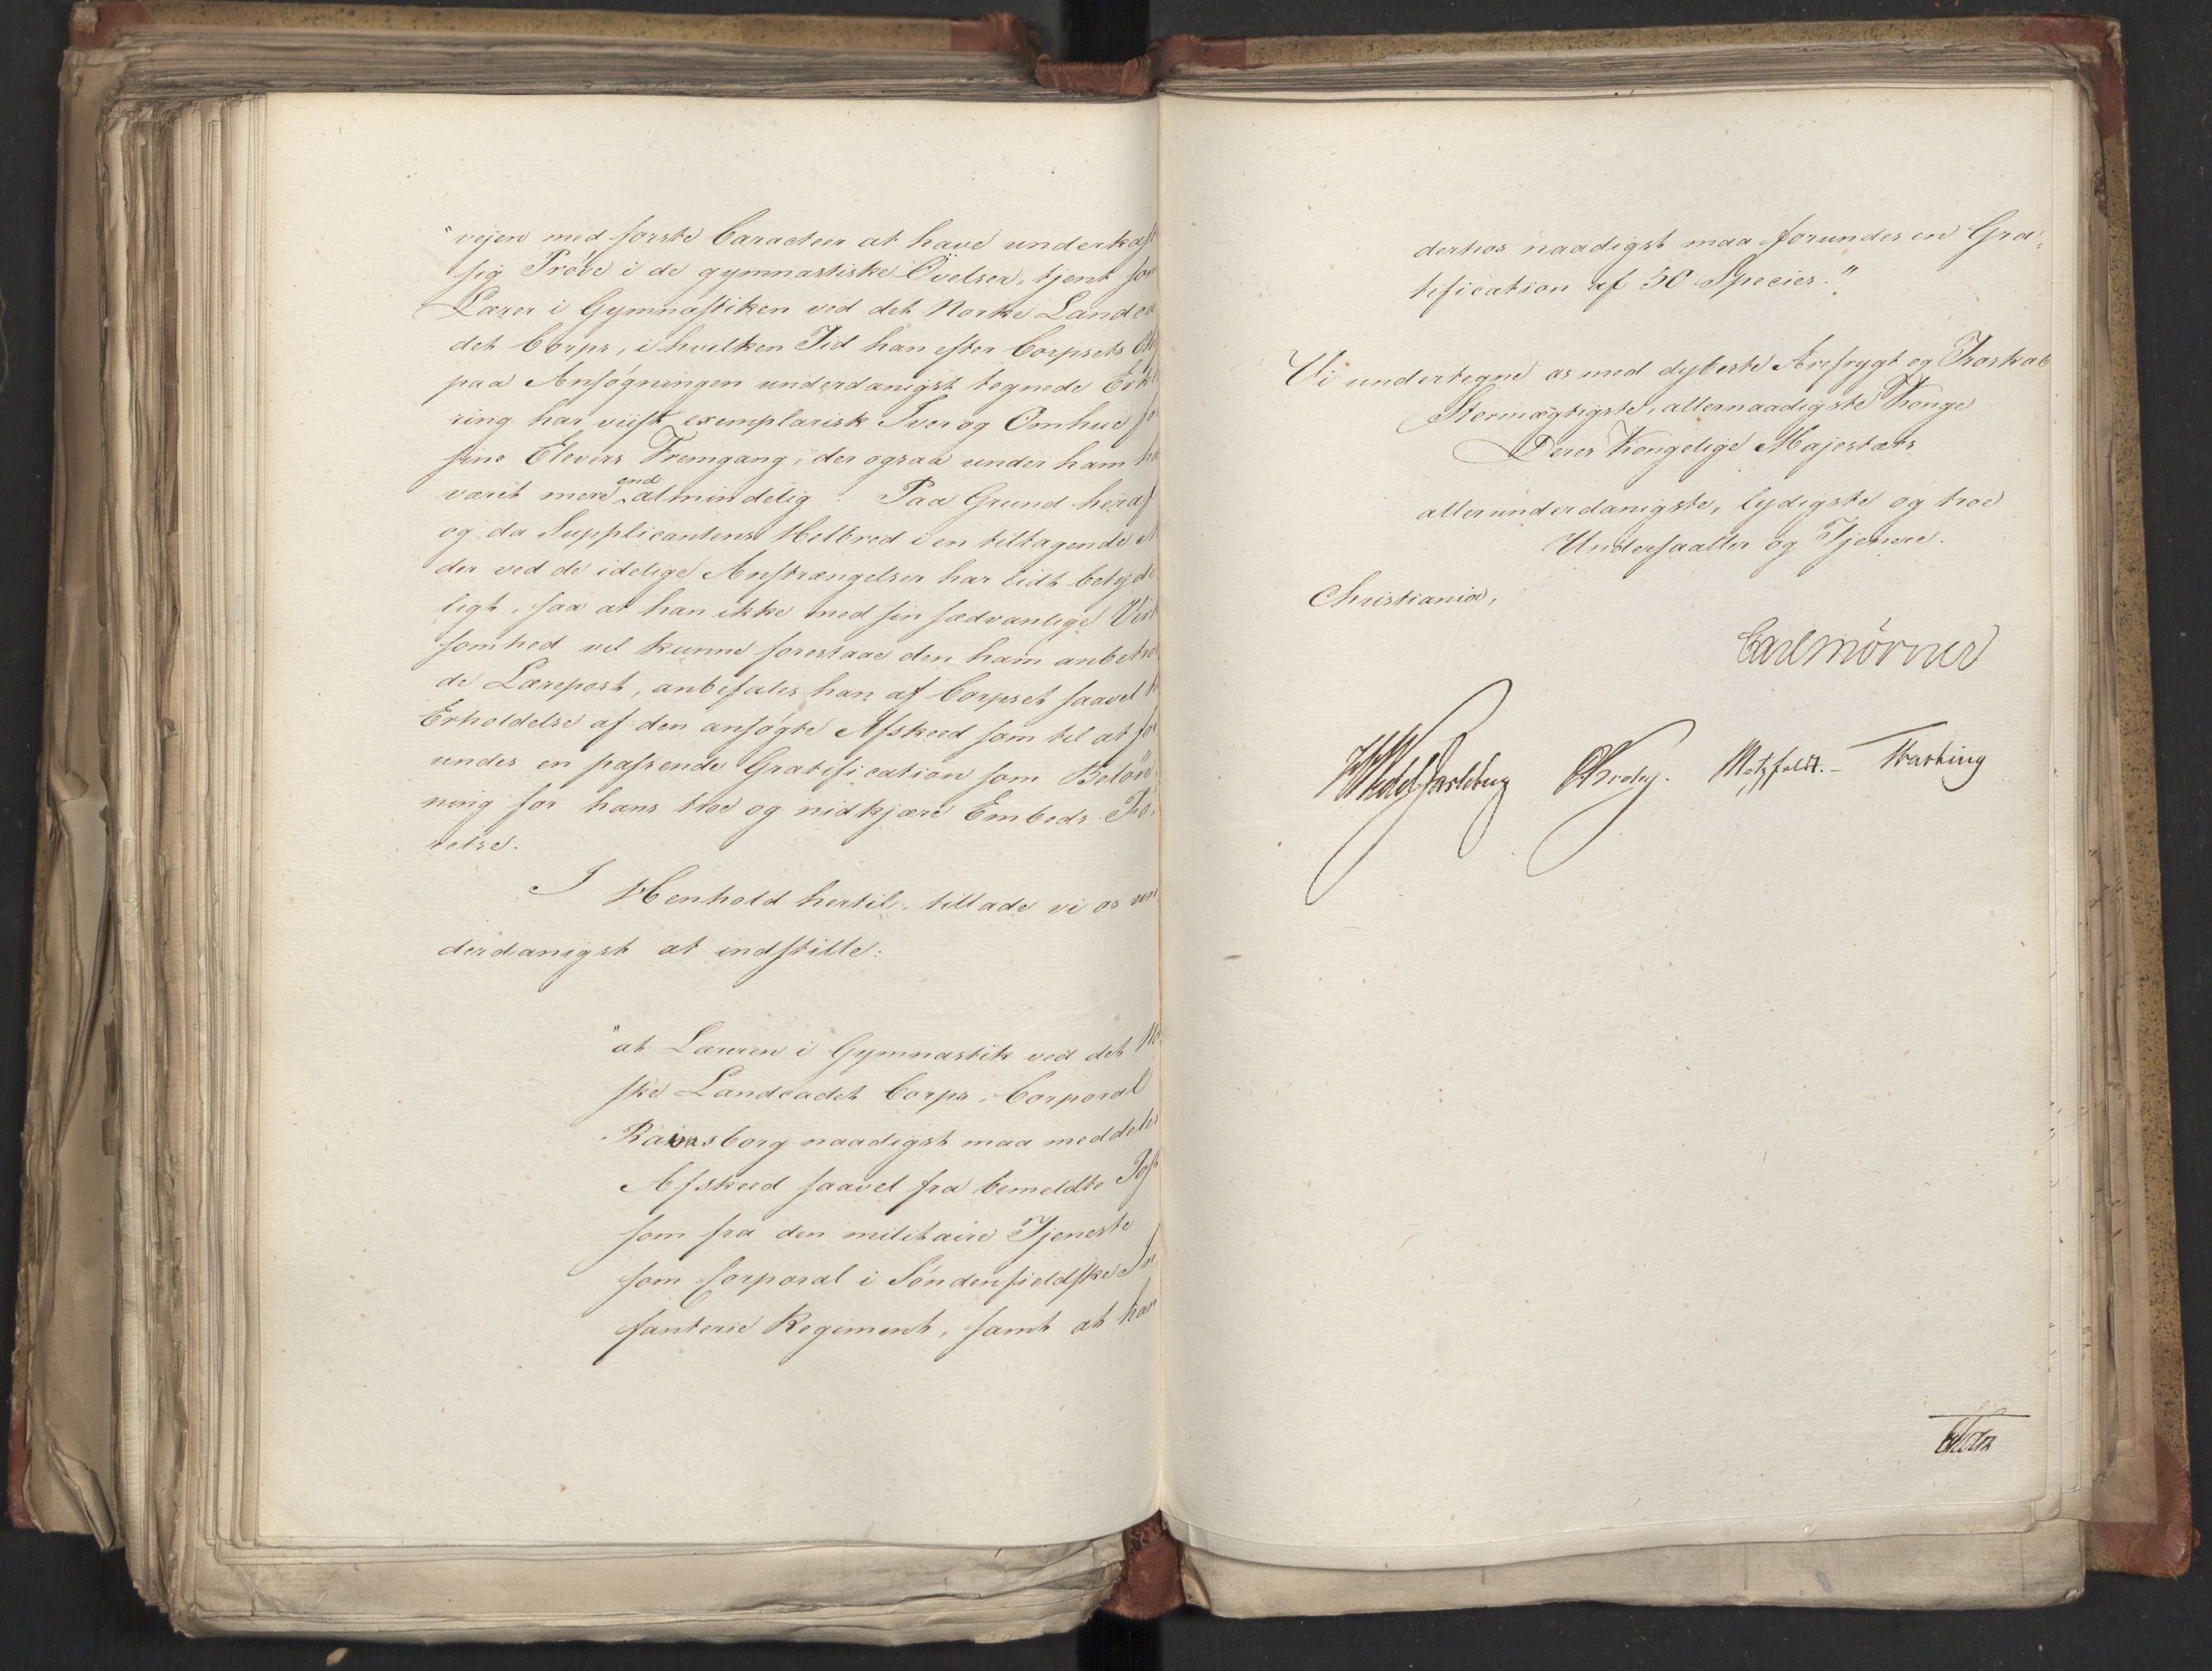 "vejen med første Caracteer at have underkast
sig Prøve i de gymnastiske Øvelser, tjent som
Lærer i Gymnastiken ved det Norske Landca
det Corps, i hvilken Tid han efter Corpsets
paa Ansøgningen underdanigst tegnede Erklæ
ring har viist exemplarisk Iver og Omhue for
sine Elevers Fremgang, der ogsaa under ham ha
været mere end almindelig. Paa Grund heraf
og da Supplicantens Helbred i en tiltagende Al
der ved de idelige Anstrængelser har lidt betyde
ligt, saa at han ikke med sin sædvanlige Virk
somhed vil kunne forestaae den ham anbetro
de Lærepost, anbefales han af Corpset saavel til
Erholdelse af den ansøgte Afskeed som til at for
undes en passende Gratification som Beløn
ning for hans troe og nidkjære Embeds Fø
relse.
I Henhold hertil, tillade vi os un
derdanigst at indstille:
"at Læreren i Gymnastik ved det No
ske Landcadet Corps, Corporal
Ravnsborg naadigst maa meddeles
Afskeed saavel fra bemeldte Post
som fra den militaire Tjeneste
som Corporal i Søndenfieldske In
fanterie Regiment, samt at han
derhos naadigst maa forundes en Gra-
tification af 50 Species."
Vi undertegne os med dybeste Ærefrygt og Troskab
Stormægtigste, allernaadigste Konge
Deres Kongelige Majestæts
allerunderdanigste, lydigste og troe
Undersaatter og Tjenere.
Christiania,
Carl Mörner
HWedel Jarlsberg Krohg. Motzfeldt. Fasting